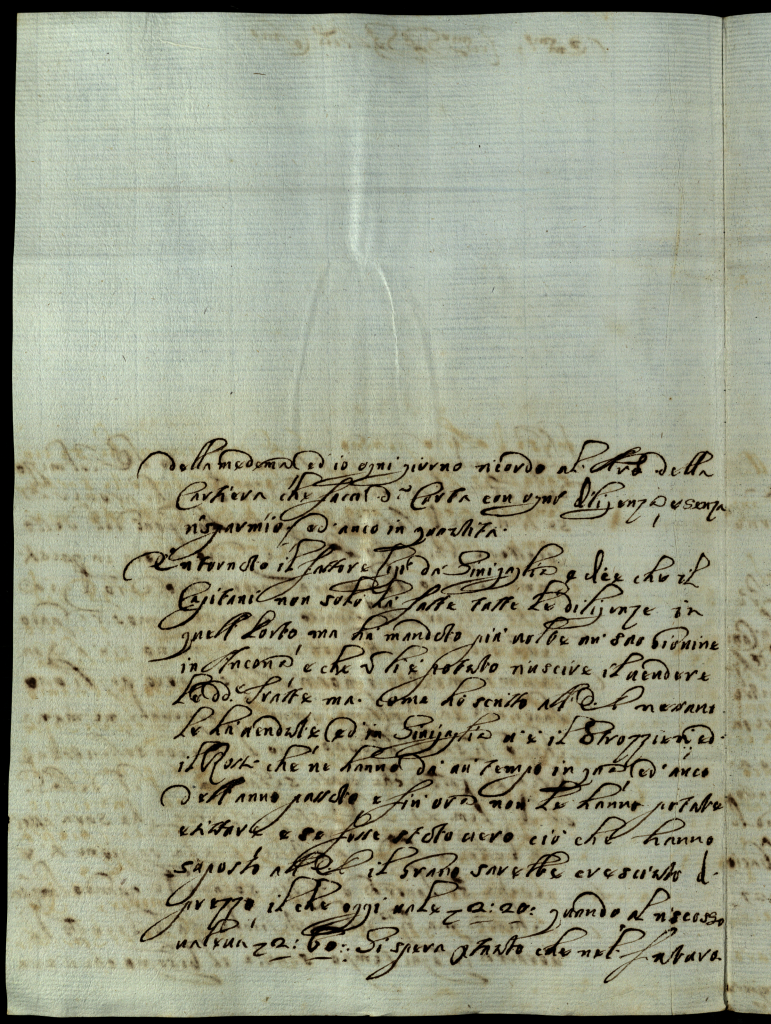 della medema ed io ogni giorno ricordo al della
Cartiera che facci d.ª Carta con ogni diligenza e senza
risparmio, ed anco in quantità.
È tornato il fattore da Sinigaglia e dice che il
Capitani non solo ha fatte tutte le diligenze in
quel Porto ma ha mandato più volte un suo giovine
in Ancona e che li è potuto riuscire il vendere
le dd. tratte ma come hò scritto all' nessuno
le ha vendute ed in Sinigaglia vi è il Strozzieri ed
il che ne hanno da un tempo in quà ed anco
dell'anno passato e fin ora non le hanno potute
esittare e se fosse stato vero ciò che hanno
suposto all' il grano sarebbe cresciuto di
prezzo il che oggi vale 2:20: quando al riscosso
valeva 2:60: Si spera che nel futuro